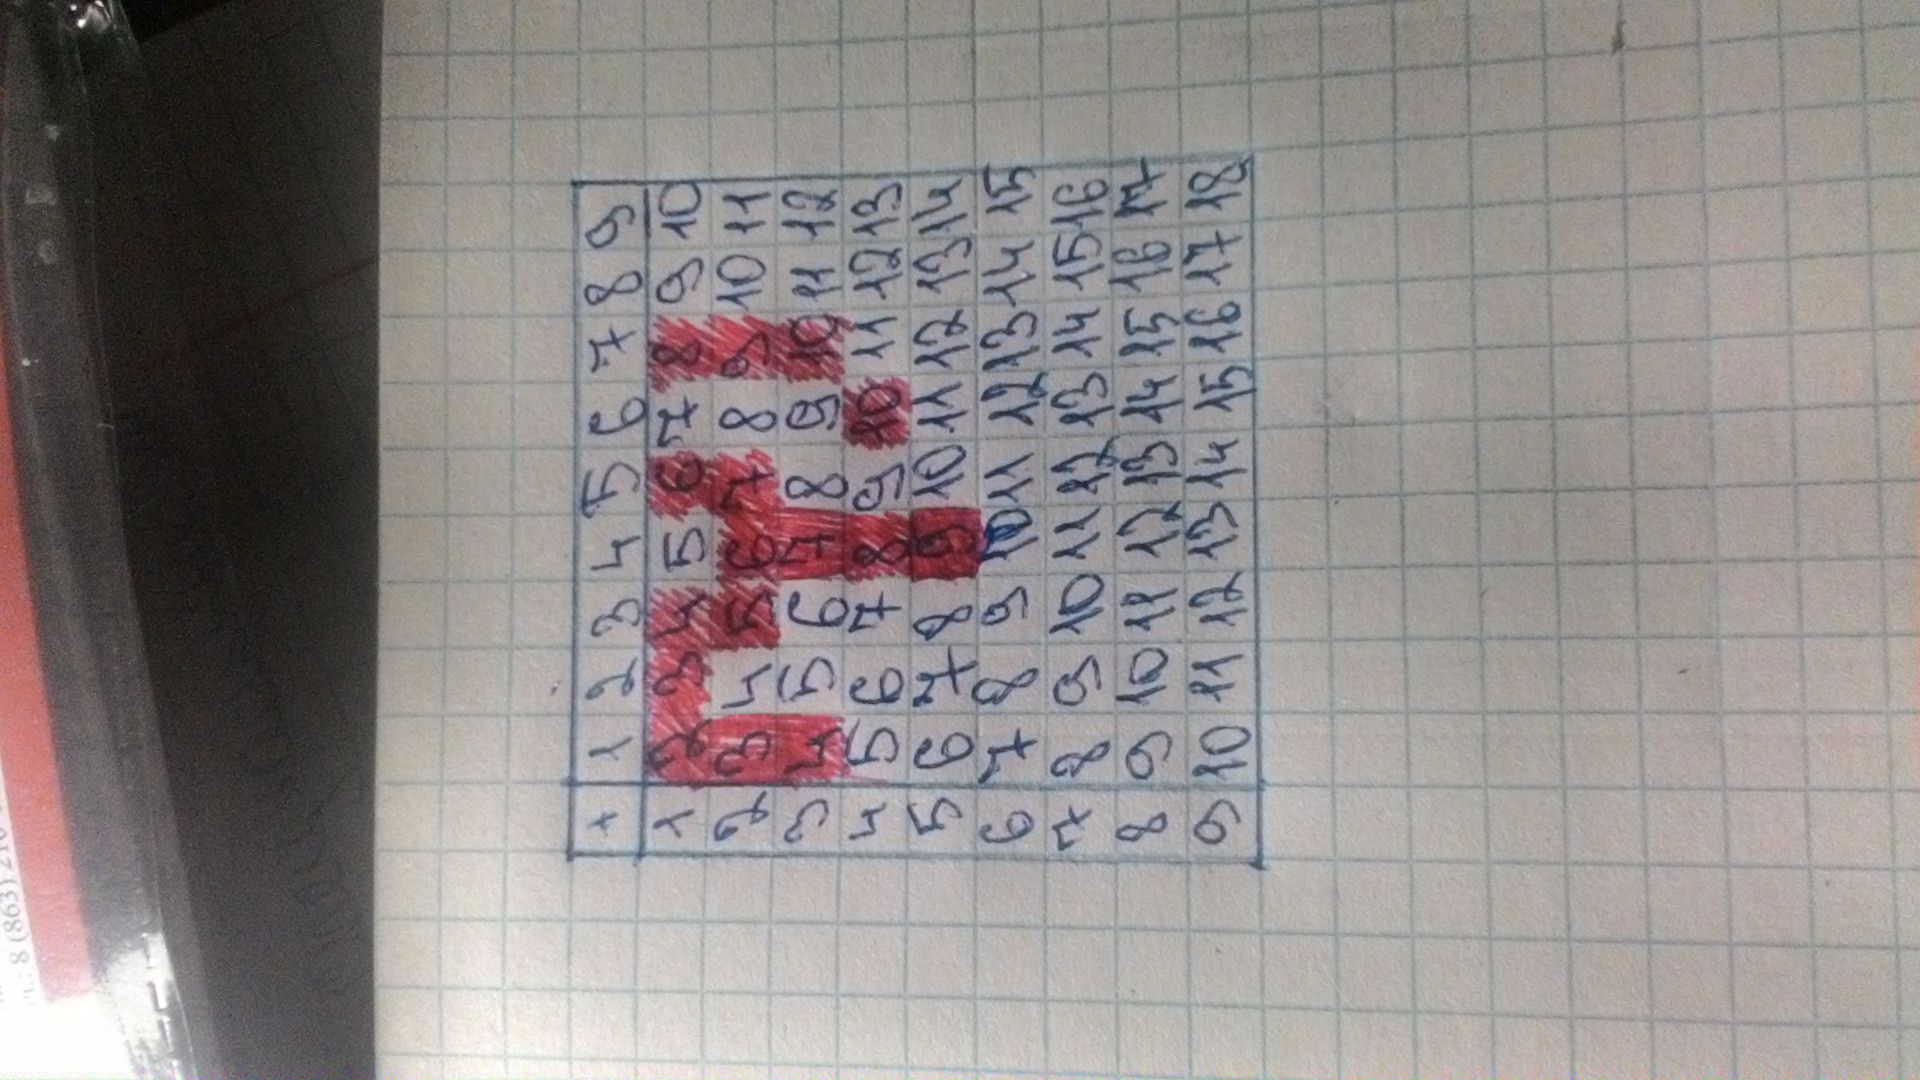 + 1 2 3 4 5 6 7 8 9
1 2 3 4 5 6 7 8 9 10
2 3 4 5 6 7 8 9 10 11
3 4 5 6 7 8 9 10 11 12
4 5 6 7 8 9 10 11 12 13
5 6 7 8 9 10 11 12 13 14
6 7 8 9 10 11 12 13 14 15
7 8 9 10 11 12 13 14 15 16
8 9 10 11 12 13 14 15 16 17
9 10 11 12 13 14 15 16 17 18